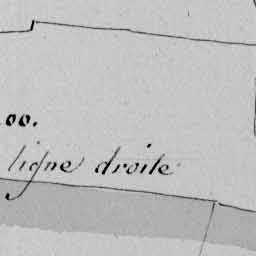 00.
ligne droite